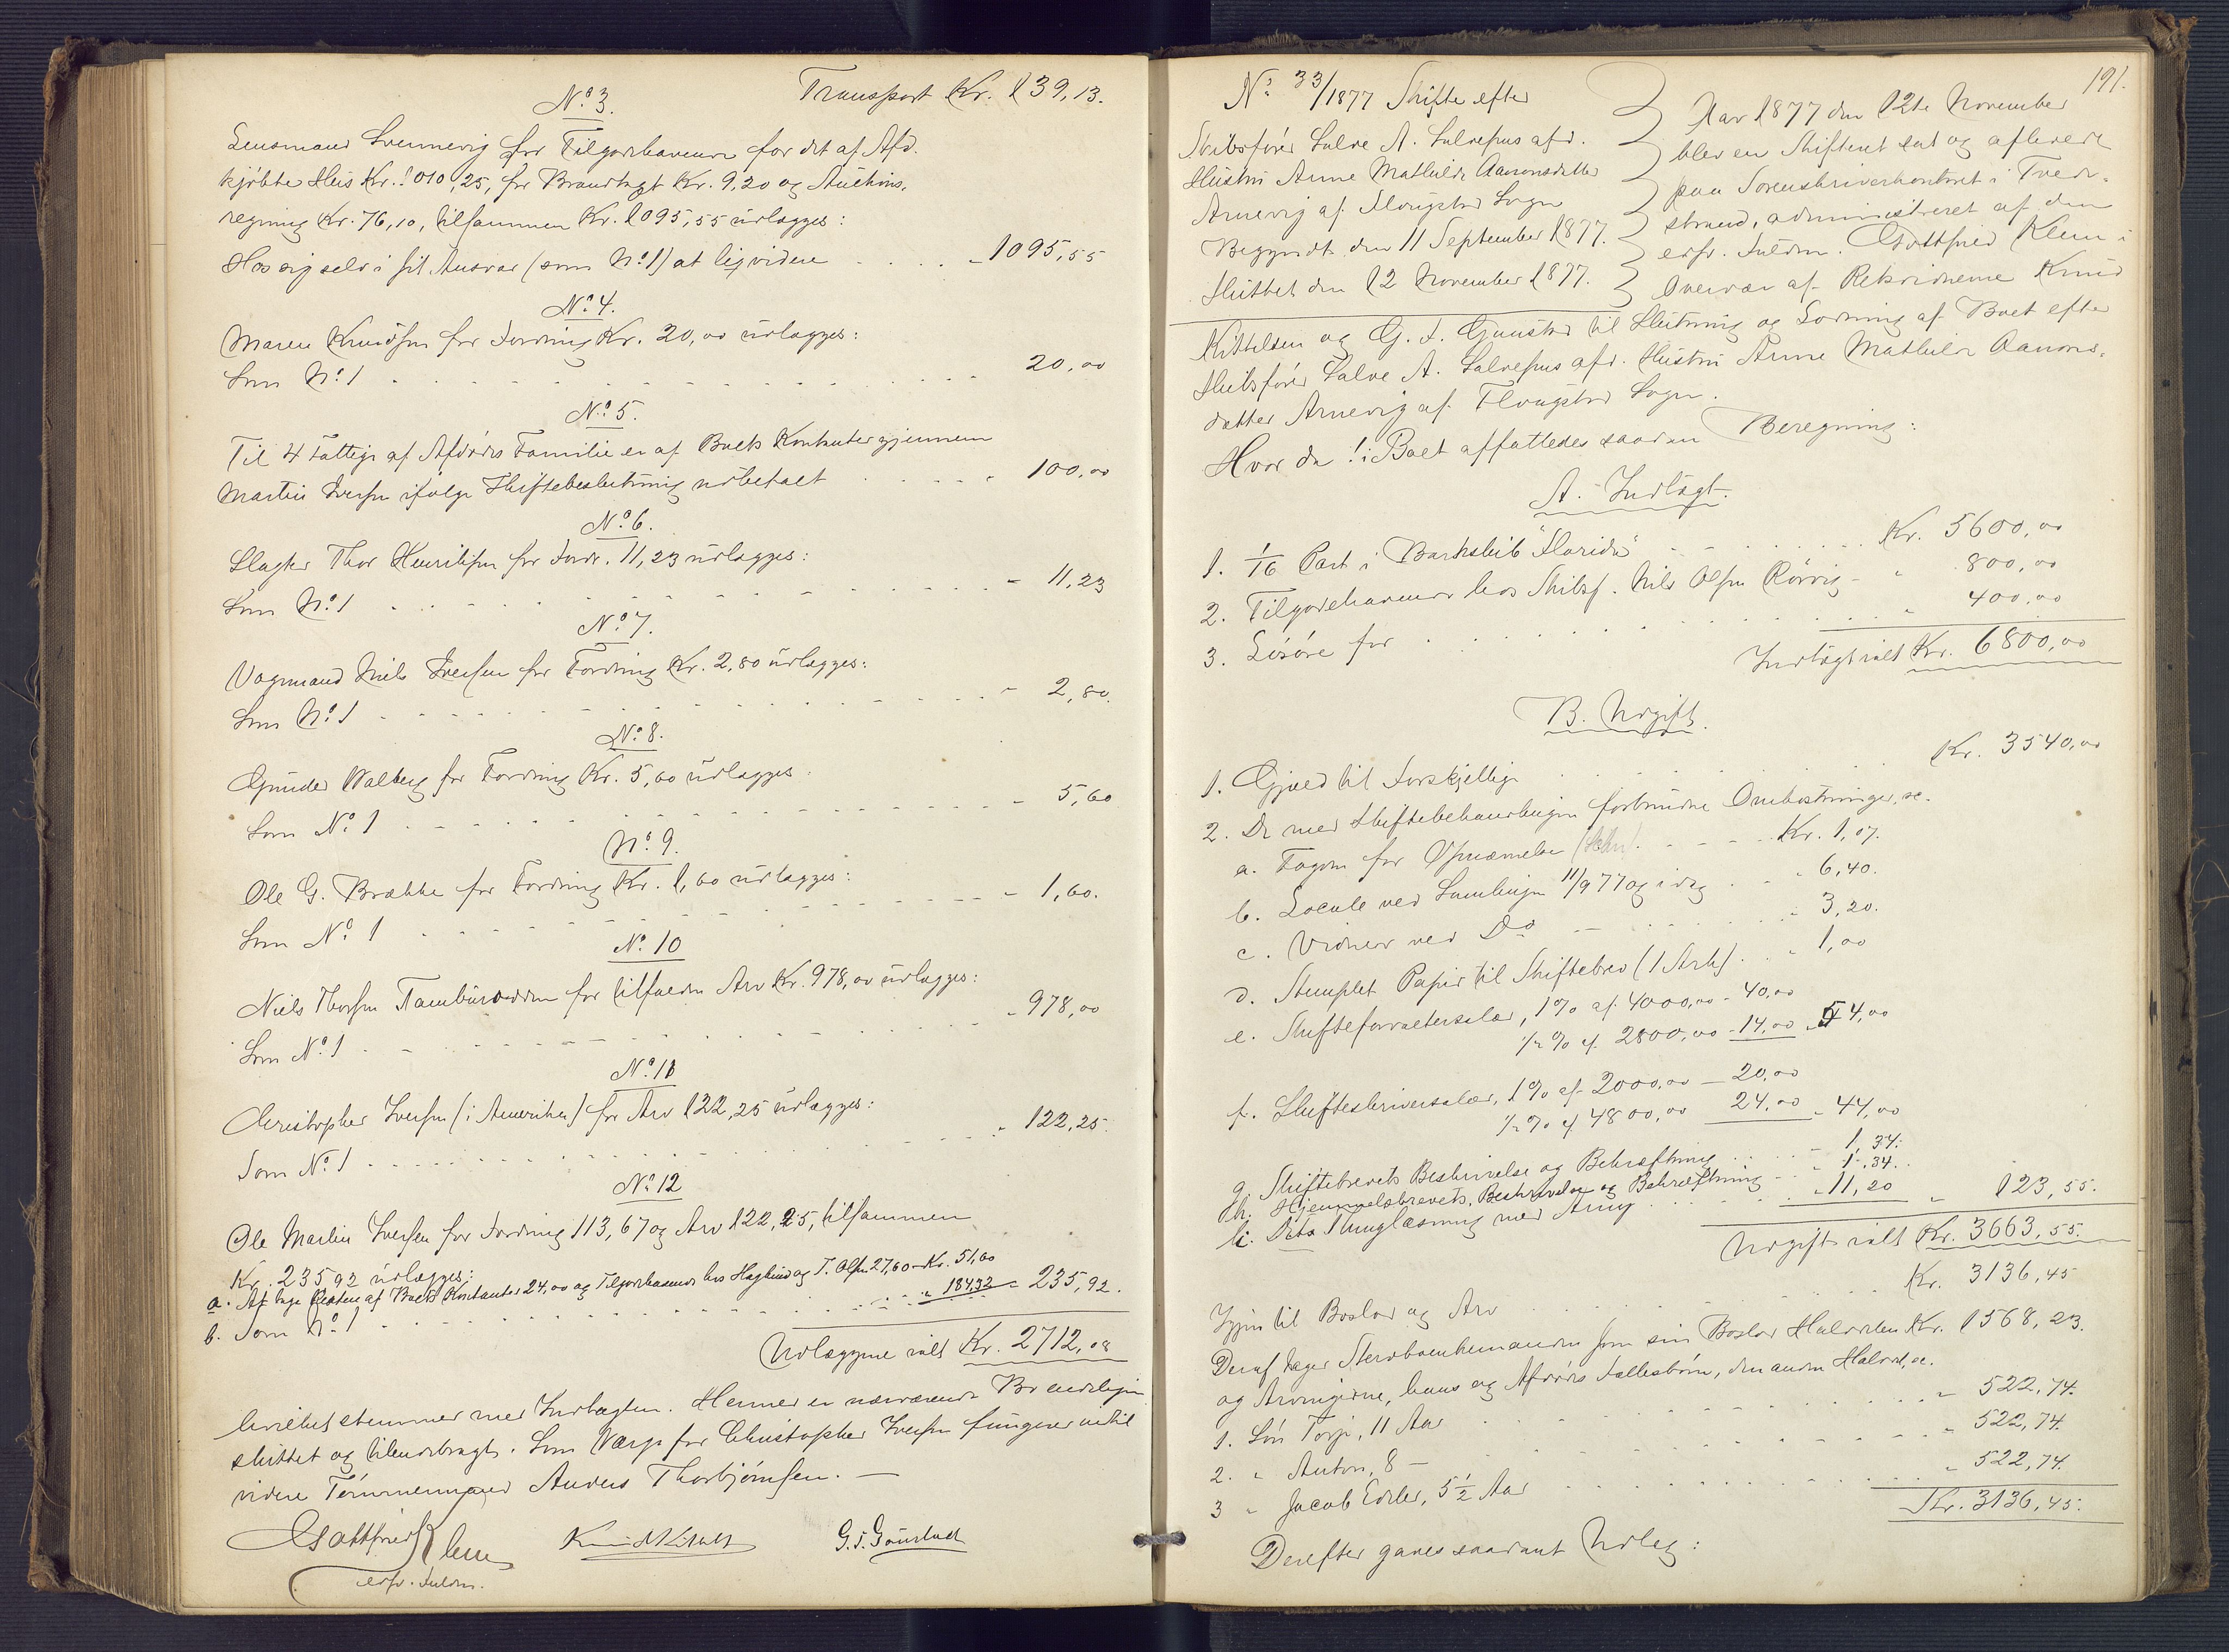 Transport Kr. 139,13.
No 3.
Lensmand Svennevig for Tilgodehavende for det af Afd.
kjöbte Huus Kr. 1010,25, for Brandtagt Kr. 9,20 og Auctions-
regning Kr. 76,10, tilsammen Kr. 1095,55 udlægges:
Hos sig selv i sit Ansvar (som No 1) at liqvidere - 1095,55
No 4.
Maren Knudsen for Fordring Kr. 20,00 udlægges:
Som No 1 20,00
No 5.
Til 4 Fattige af Afdødes Familie er af Boets Kontanter gjennem
Martin Iversen ifølge Skiftebeslutning udbetalt - 100,00
No 6.
Slagter Thor Henriksen for Fordr. 11,23 udlægges:
Som No 1 - 11,23
No 7.
Vognmand Niels Iversen for Fordring Kr. 2,80 udlægges:
Som No 1 - 2,80.
No 8.
Gunder Walberg for Fordring Kr. 5,60 udlægges:
Som No 1 - 5,60
No 9.
Ole G. Brække for Fordring Kr. 1,60 udlægges:
Som No 1 - 1,60.
No 10
Niels Thorsen for tilfalden Arv Kr. 978,00 udlægges:
Som No 1 - 978,00
No 11
Christopher Iversen (i Amerika) for Arv 122,25 udlægges:
Som No 1 - 122,25.
No 12
Ole Martin Iversen for Fordring 113,67 og Arv 122,25, tilsammen
Kr. 235,92 udlægges:
a. At tage Resten af Boets Kontanter 24,00 og Tilgodehavende hos og T. Olsen 27,60 - Kr. 51,60
b. Som No 1 - 184,32 - 235,92.
Udlæggene ialt Kr. 2712,08
hvilket stemmer med Indtægten. Hermed er nærværende Bo endeligen
sluttet og tilendebragt. Som Værge for Christopher Iversen fungerer indtil
videre Tömmermand Anders Thorbjörnsen. —
Gottfried Klem
edsv. Fuldm.
G. F. Gounstad
191.
No 33/1877 Skifte efter
Skibsförer Salve A. Salvesens afd.
Hustru Anne Mathilde Aanonsdatter
Arnevig af Flougstad Sogn
Begyndt den 11 September 1877.
Sluttet den 12 November 1877.
Aar 1877 den 12te November
blev en Skifteret sat og afholdt
paa Sorenskriverkontoret i Tvede-
strand, administreret af den
edsv. Fuldm. Gottfried Klem i
Overvær af Retsvidnerne Knud
Kittelsen og G. F. Gaunstad til Slutning og Lodning af Boet efter
Skibsförer Salve A. Salvesens afd. Hustru Anne Mathilde Aanons-
datter Arnevig af Flougstad Sogn.
Hvor da! i Boet affattedes saadan Beregning:
A. Indtægt.
1. 1/16 Part i Barkskib "Florida" Kr. 5600,00
2. Tilgodehavende hos Skibsf. Nils Olsen Rörvig - " 800,00
3. Lösöre for " 400,00
Indtægt ialt Kr. 6800,00
B. Udgift.
1. Gjæld til Forskjellige Kr. 3540,00
2. De med Skiftebehandlingen forbundne Omkostninger, sc.
a. Fogden for Opnævnelse Kr. 1,07.
b. Locale ved Samlingen 11/9 77 og i dag " 6,40.
c. Vidner ved Do " 3,20.
d. Stemplet Papir til Skiftebrev (1 Ark) " 1,00
e. Skifteforvaltersalær, 1% af 4000,00 - 40,00
1/2 % af 2800,00 - 14,00 " 54,00
f. Skifteskriversalær, 1% af 2000,00 - 20,00
1/2 % af 4800,00 24,00 " 44,00
g. Skiftebrevets Beskrivelse og Bekræftning - 1,34.
h. Hjemmelsbrevets Beskrivelse og Bekræftning " 1,34.
i. Dets Thinglæsning med " 11,20 " 123,55.
Udgift ialt Kr. 3663,55.
Igjen til Boslod og Arv Kr. 3136,45
Deraf tager Stervboenkemanden som sin Boslod Halvdelen Kr. 1568,23.
og Arvingerne, hans og Afdødes Fællesbörn, den anden Halvdel, sc.
1. Sön Torje, 11 Aar " 522,74.
2. " Anton, 8 — " 522,74.
3 " Jacob Edler, 5 1/2 Aar " 522,74.
Kr. 3136,45.
Derefter gaves saadant Udlæg: